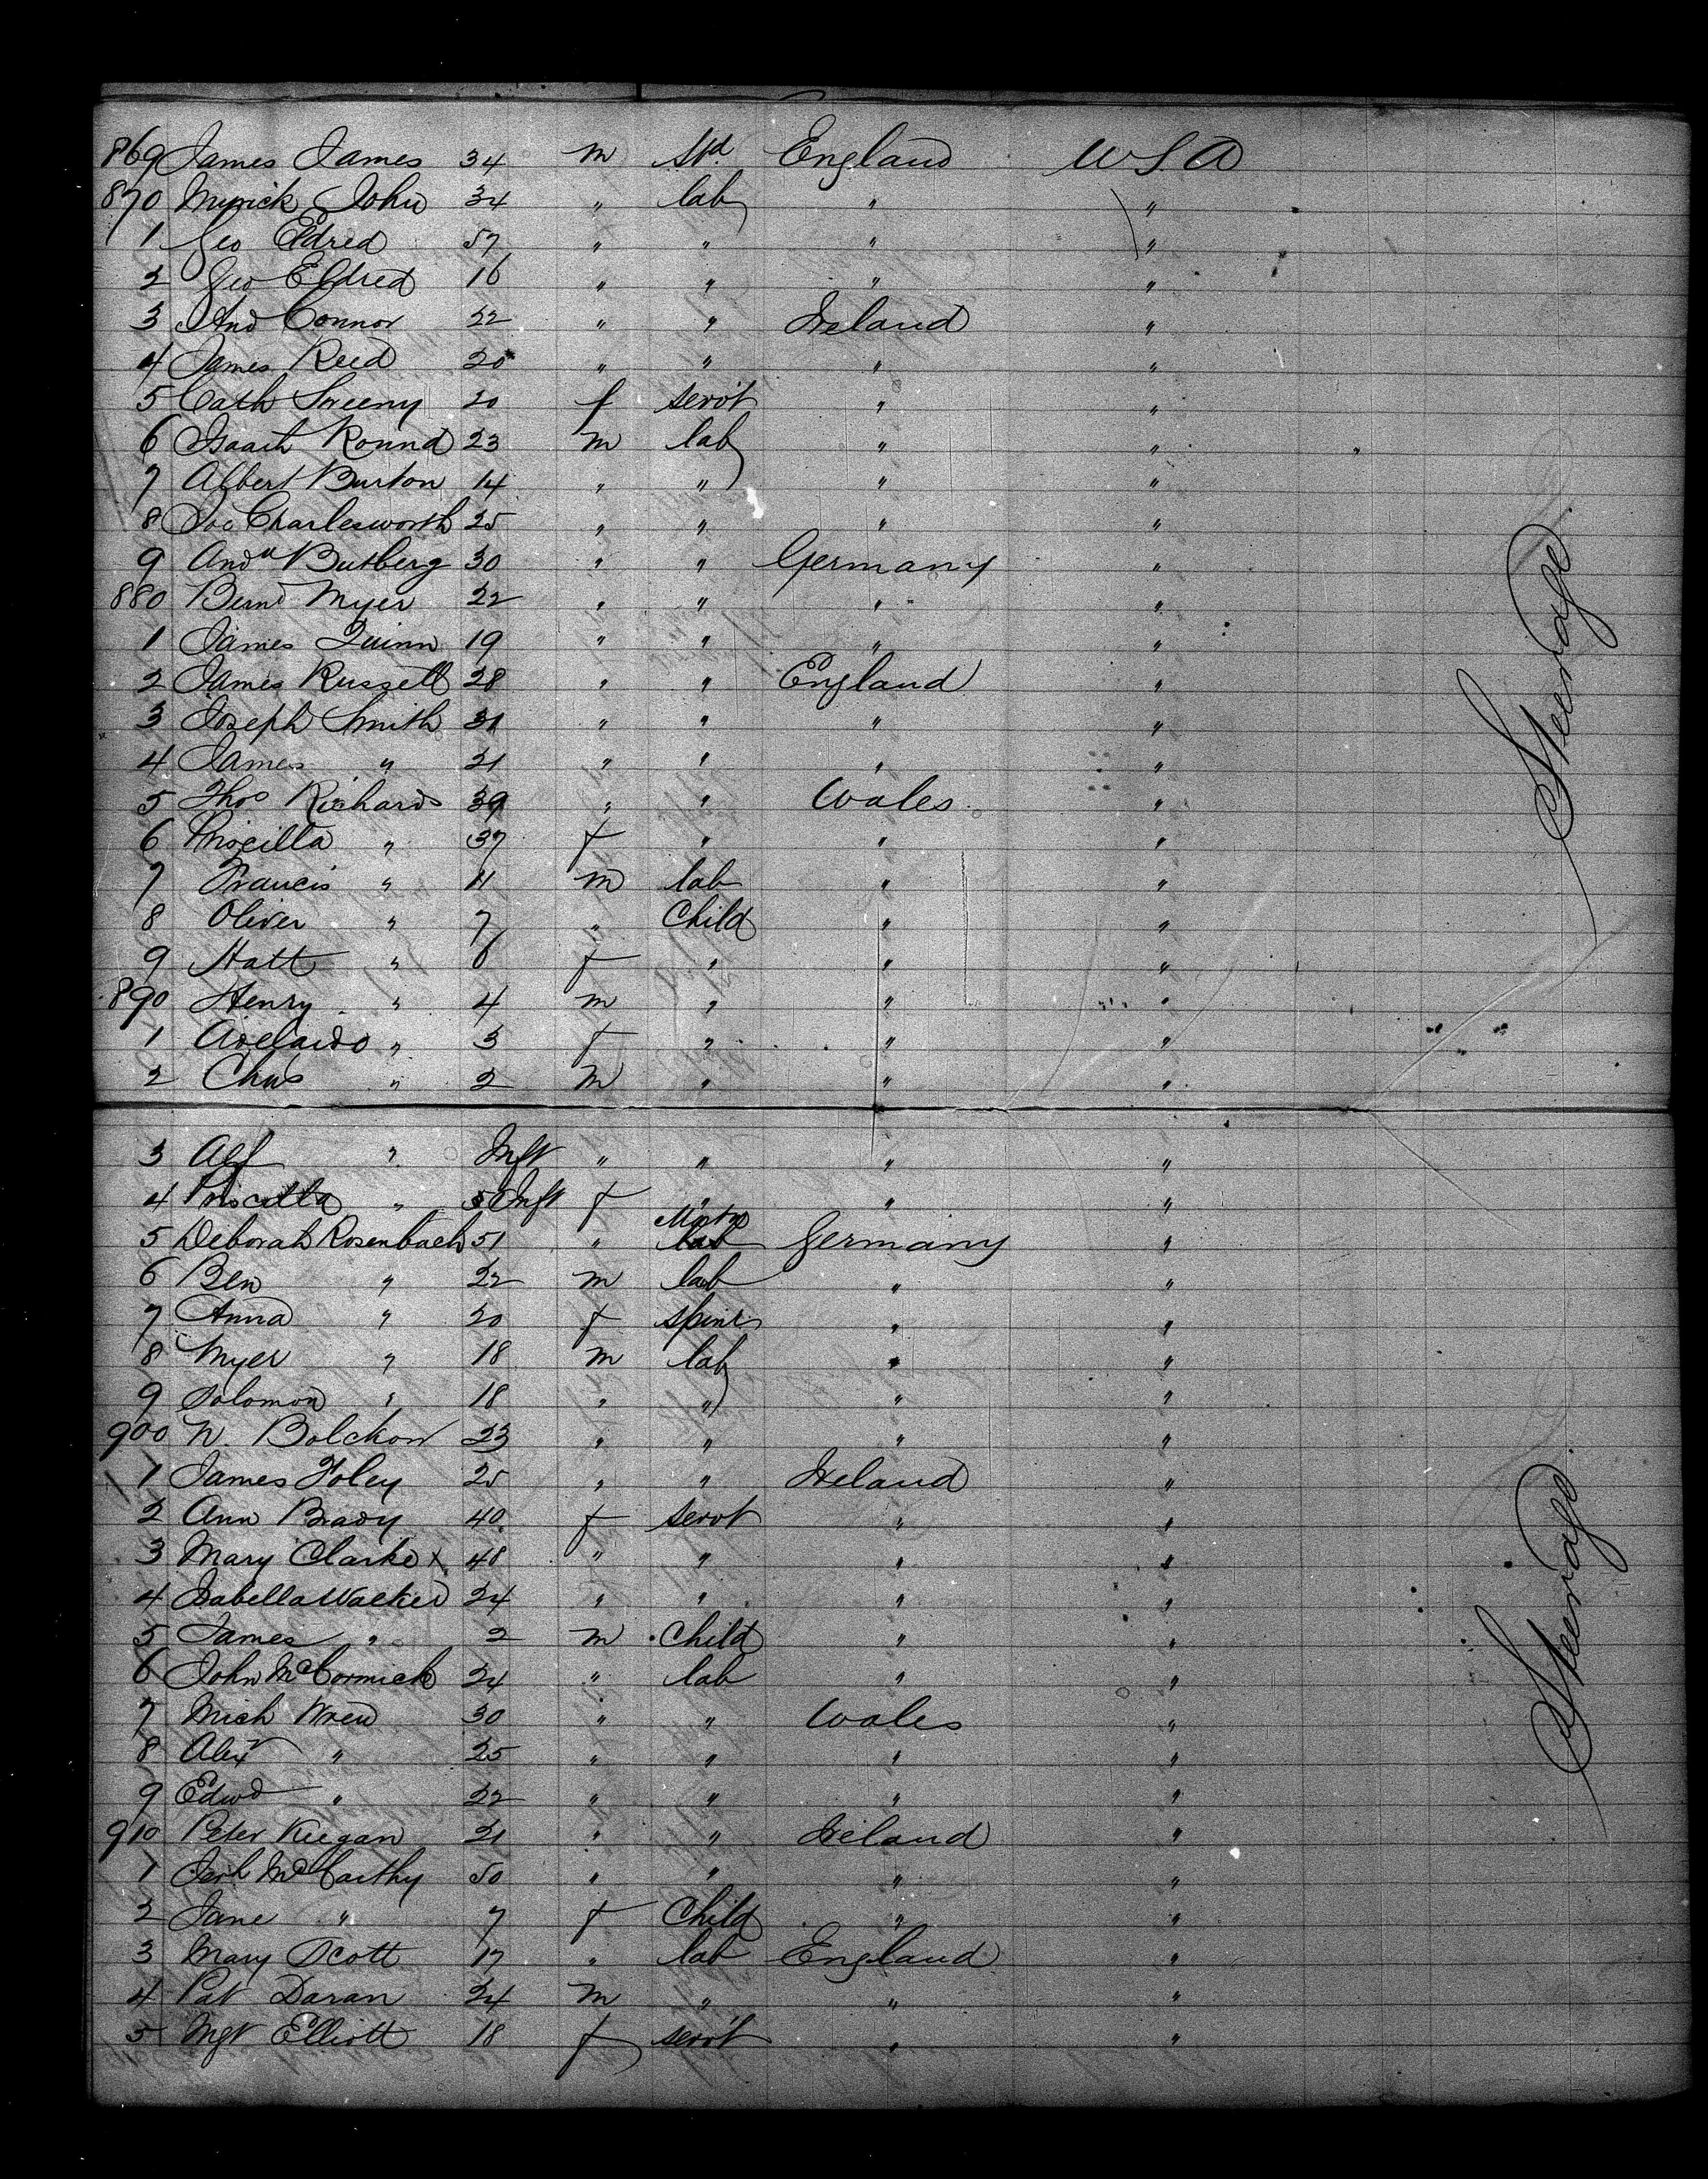 869 James James 34 m England U S A
870 Myrick John 34 " lab " "
1 Geo Eldred 57 " " " "
2 Geo Eldred 16 " " " "
3 And Connor 22 " " Ireland "
4 James Reed 20 " " " "
5 Cath Sweeny 20 f servt " "
6 Round 23 m lab " "
7 Albert Burton 14 " " " "
8 Joe Charlesworth 25 " " " "
9 Andw Butberg 30 " " Germany "
880 Bernd Myer 22 " " " "
1 James Quinn 19 " " " "
2 James Russell 28 " " England "
3 Joseph Smith 31 " " " "
4 James " 21 " " " "
5 Thos Richards 39 " " Wales "
6 Priscilla " 37 f " " "
7 Francis " 11 m lab " "
8 Oliver " 7 " Child " "
9 Hatt " 6 f " " "
890 Henry " 4 m " " "
1 Adelaide " 3 f " " "
2 Chas " 2 m " " "
3 Alf " Inft " " " "
4 Priscilla " Inft f " " "
5 Deborah Rosenbach 51 " Germany "
6 Ben " 22 m lab " "
7 Anna " 20 f spinr " "
8 Myer " 18 m lab " "
9 Solomon " 18 " " " "
900 N. Bolckow 23 " " " "
1 James Foley 25 " " Ireland "
2 Ann Brady 40 f servt " "
3 Mary Clarke x 48 " " " "
4 Isabella Walker 24 " " " "
5 James " 2 m Child " "
6 John McCormick 24 " lab " "
7 Mich Wren 30 " " Wales "
8 Alexr " 25 " " " "
9 Edwd " 22 " " " "
910 Peter Keegan 21 " " Ireland "
1 Jerh McCarthy 50 " " " "
2 Jane " 7 f Child " "
3 Mary Scott 17 " lab England "
4 Pat Daran 24 m " " "
5 Mgt Elliott 18 f servt " "
Steerage
Steerage